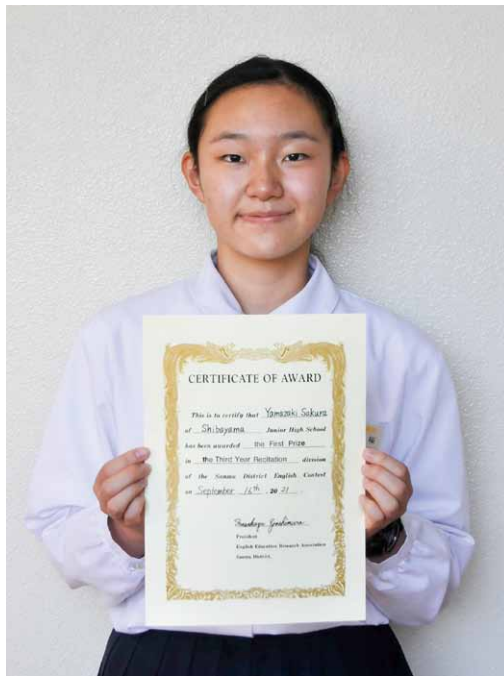 CERTIFICATE OF AWARD
This is to certify that Yamazaki Sakura
of Shibayama Junior High School
has been awarded the First Prize
in the Third Year Recitation division
of the Sanmu District English Contest
on September 16th, 2021.
President
English Education Research Association
Sanmu District,